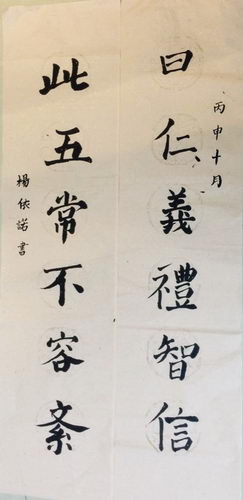 丙申十月
曰仁義禮智信
此五常不容紊
楊依諾書